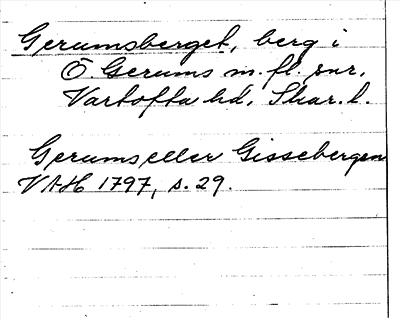 Gerumsberget, berg i
Ö. Gerums m. fl. snr,
Vartofta hd, Skar. l.
Gerums eller Gissebergen
VAH 1797, s. 29.